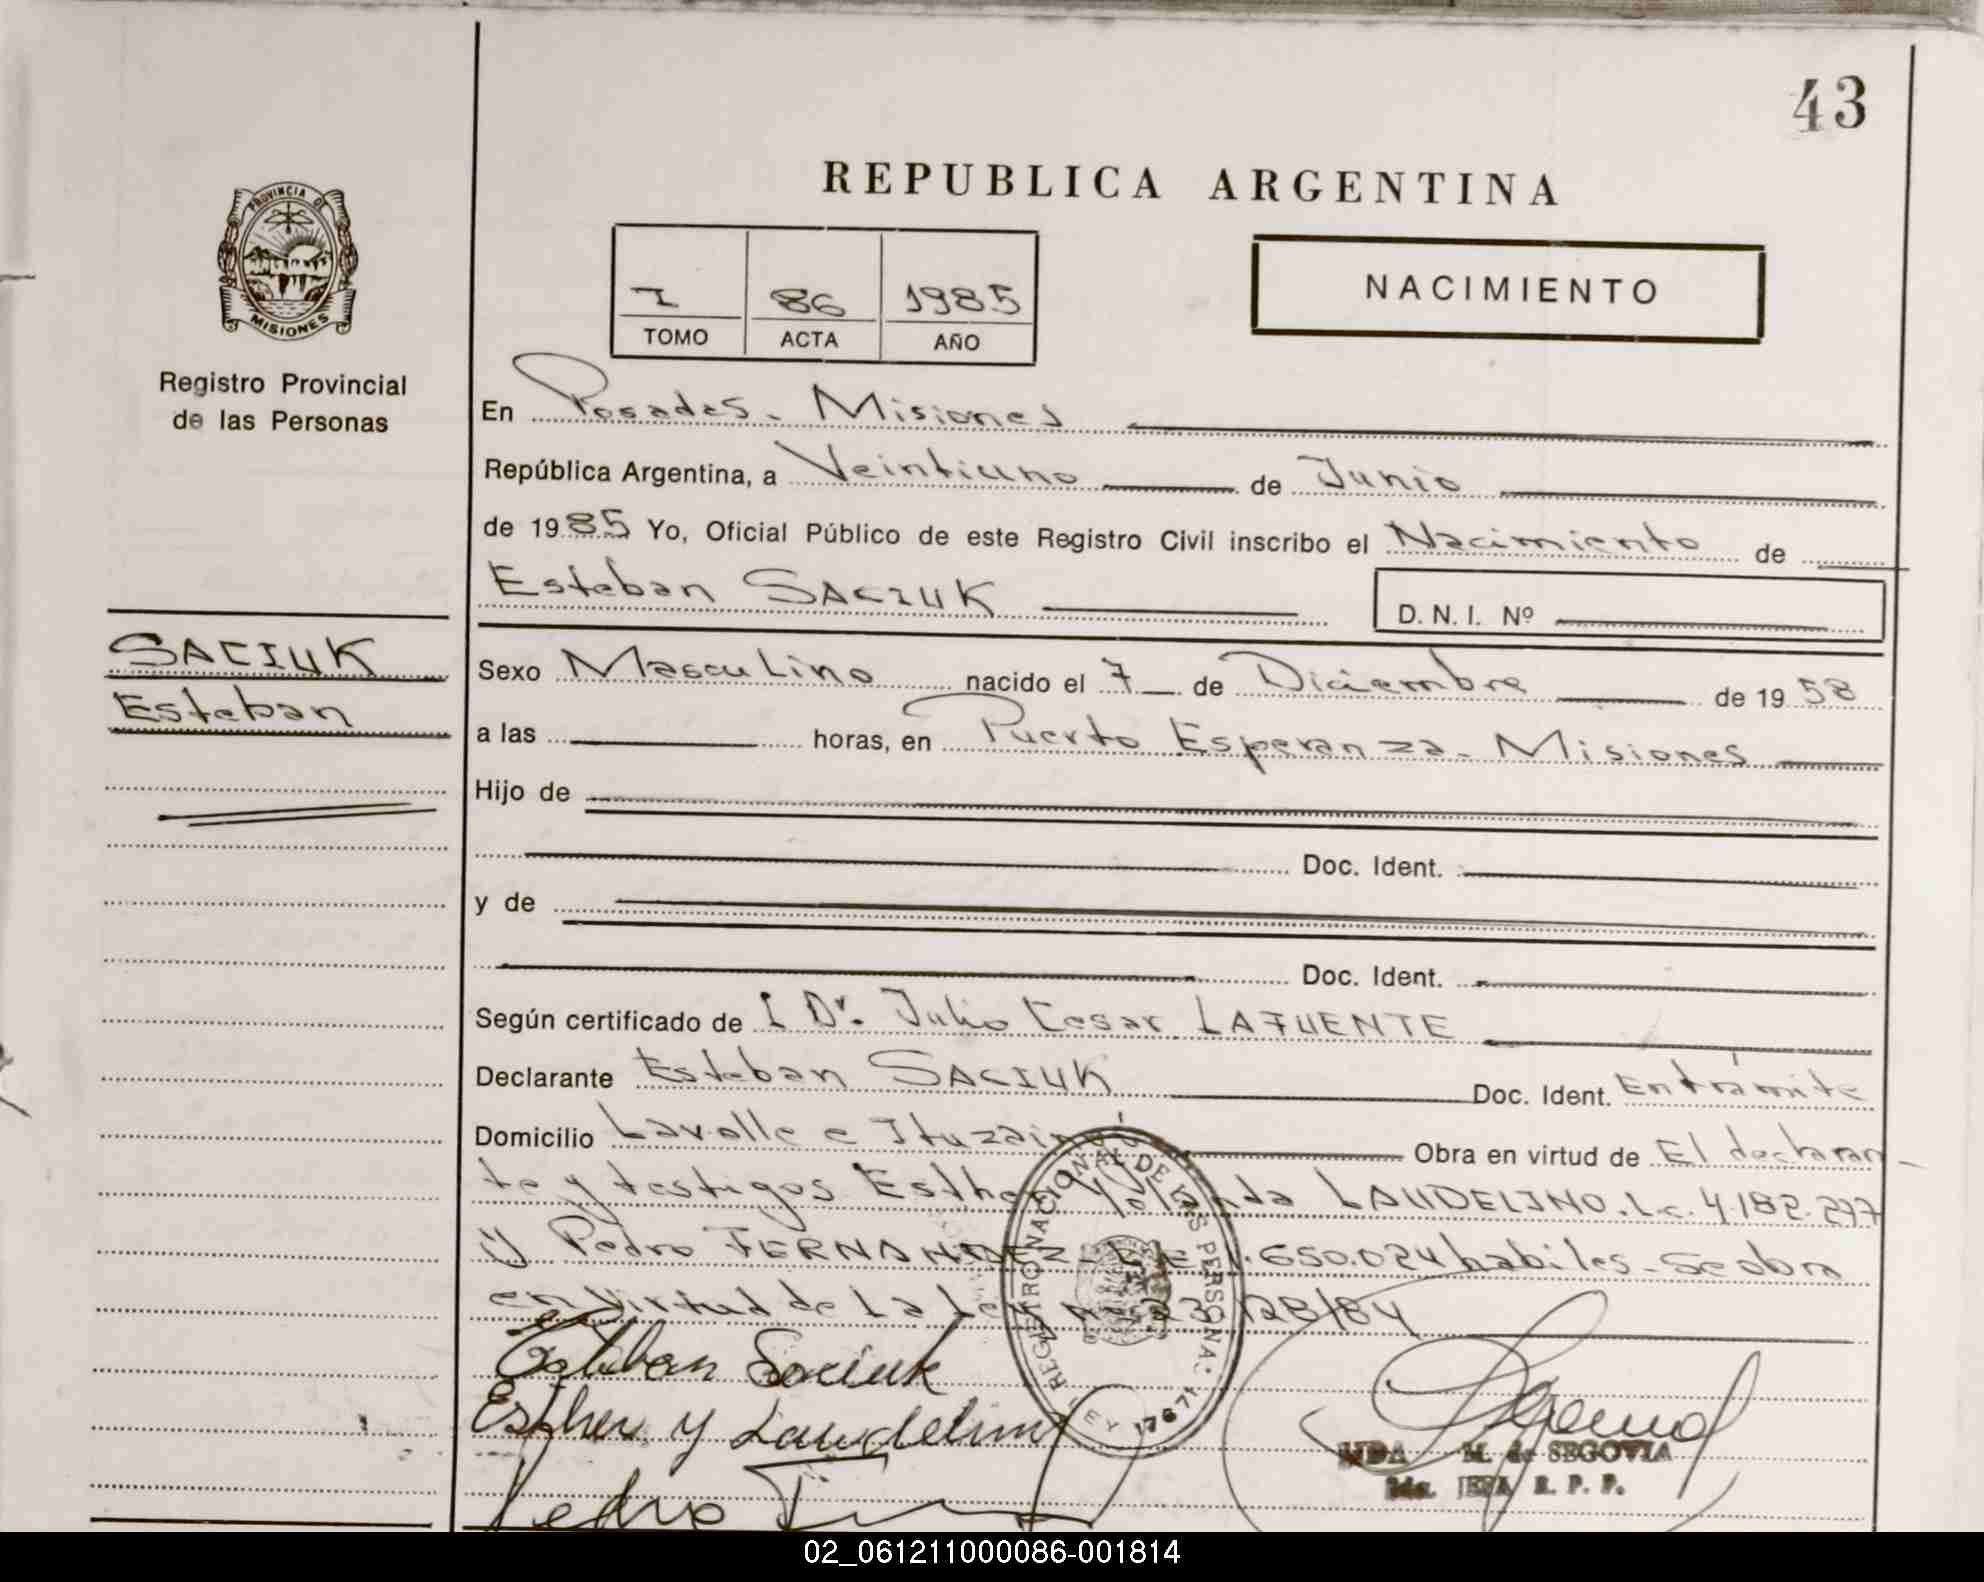 43
REPUBLICA ARGENTINA
PROVINCIA DE
MISIONES
Registro Provincial
de las Personas
I 86 1985
TOMO ACTA AÑO
NACIMIENTO
En Posadas. Misiones
República Argentina, a Veintiuno de Junio
de 1985 Yo, Oficial Público de este Registro Civil inscribo el Nacimiento de
Esteban SACIUK
D. N. I. Nº
SACIUK
Esteban
Sexo Masculino nacido el 7 de Diciembre de 1958
a las horas, en Puerto Esperanza. Misiones
Hijo de
Doc. Ident.
y de
Doc. Ident.
Según certificado de Dr. Julio Cesar LAFUENTE
Declarante Esteban SACIUK Doc. Ident. En trámite
Domicilio Lavalle e Ituzaingó Obra en virtud de El declaran
te y testigos Esther Yolanda LAUDELINO. L.c. 4.182.277
y Pedro FERNANDEZ .650.024 habiles. Se obra
en virtud de la Ley Nº 23.128/84
REGISTRO NACIONAL DE LAS PERSONAS
LEY 17671
Esteban Saciuk
Esther Y Laudelino
Pedro
M. de SEGOVIA
JEFA R. P. P.
02_061211000086-001814